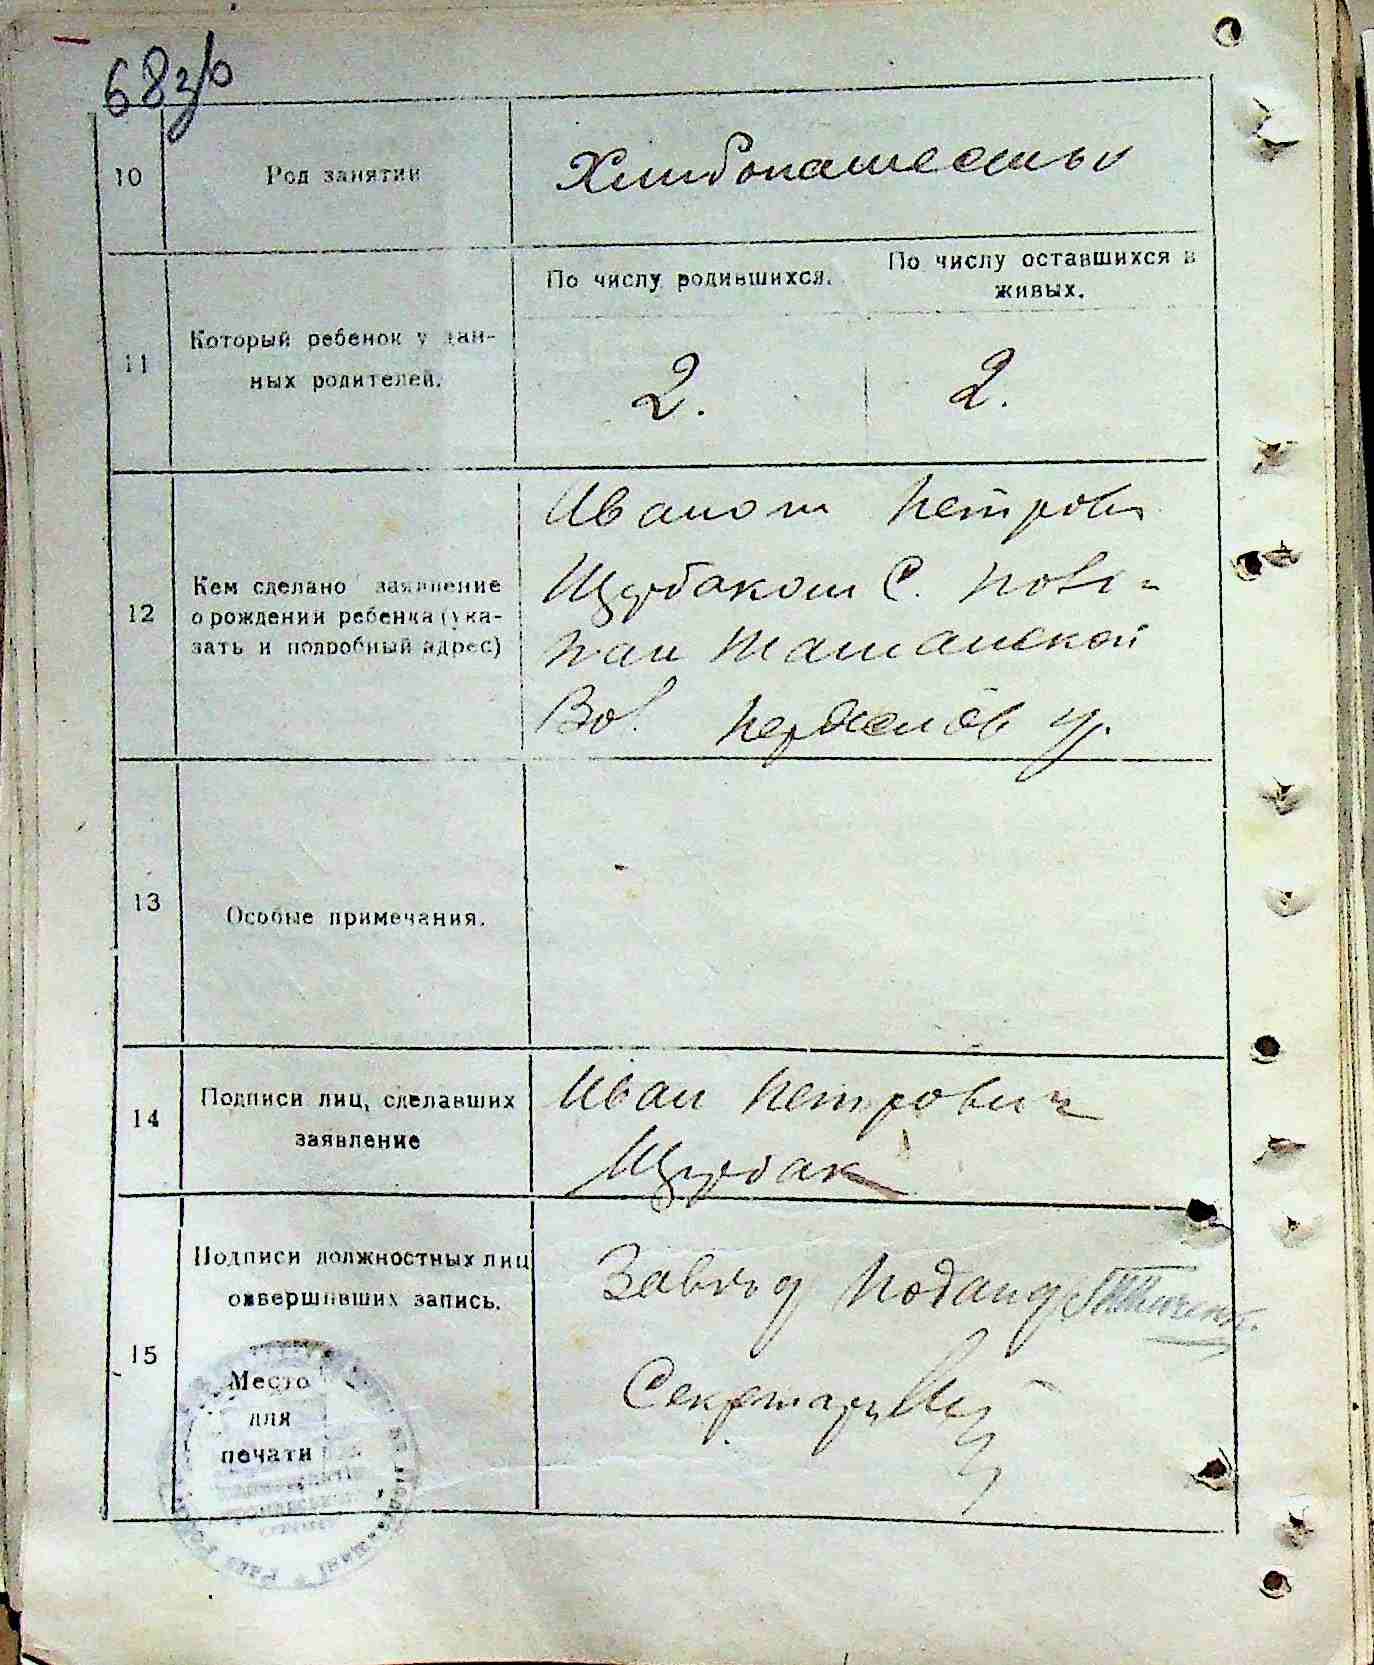 68 з/о
10
Род занятий
Хлибопашество
11
Который ребенок у дан-
ных родителей.
По числу родившихся.
По числу оставшихся в
живых.
2.
2.
12
Кем сделано заявление
о рождении ребенка (ука-
зать и подробный адрес)
Иваном Петров
Щербаком С.
Вол.
13
Особые примечания.
14
Подписи лиц, сделавших
заявление
Иван Петрович
Щербак
15
Подписи должностных лиц
совершивших запись.
Место
для
печати
Завпод
Секретарь